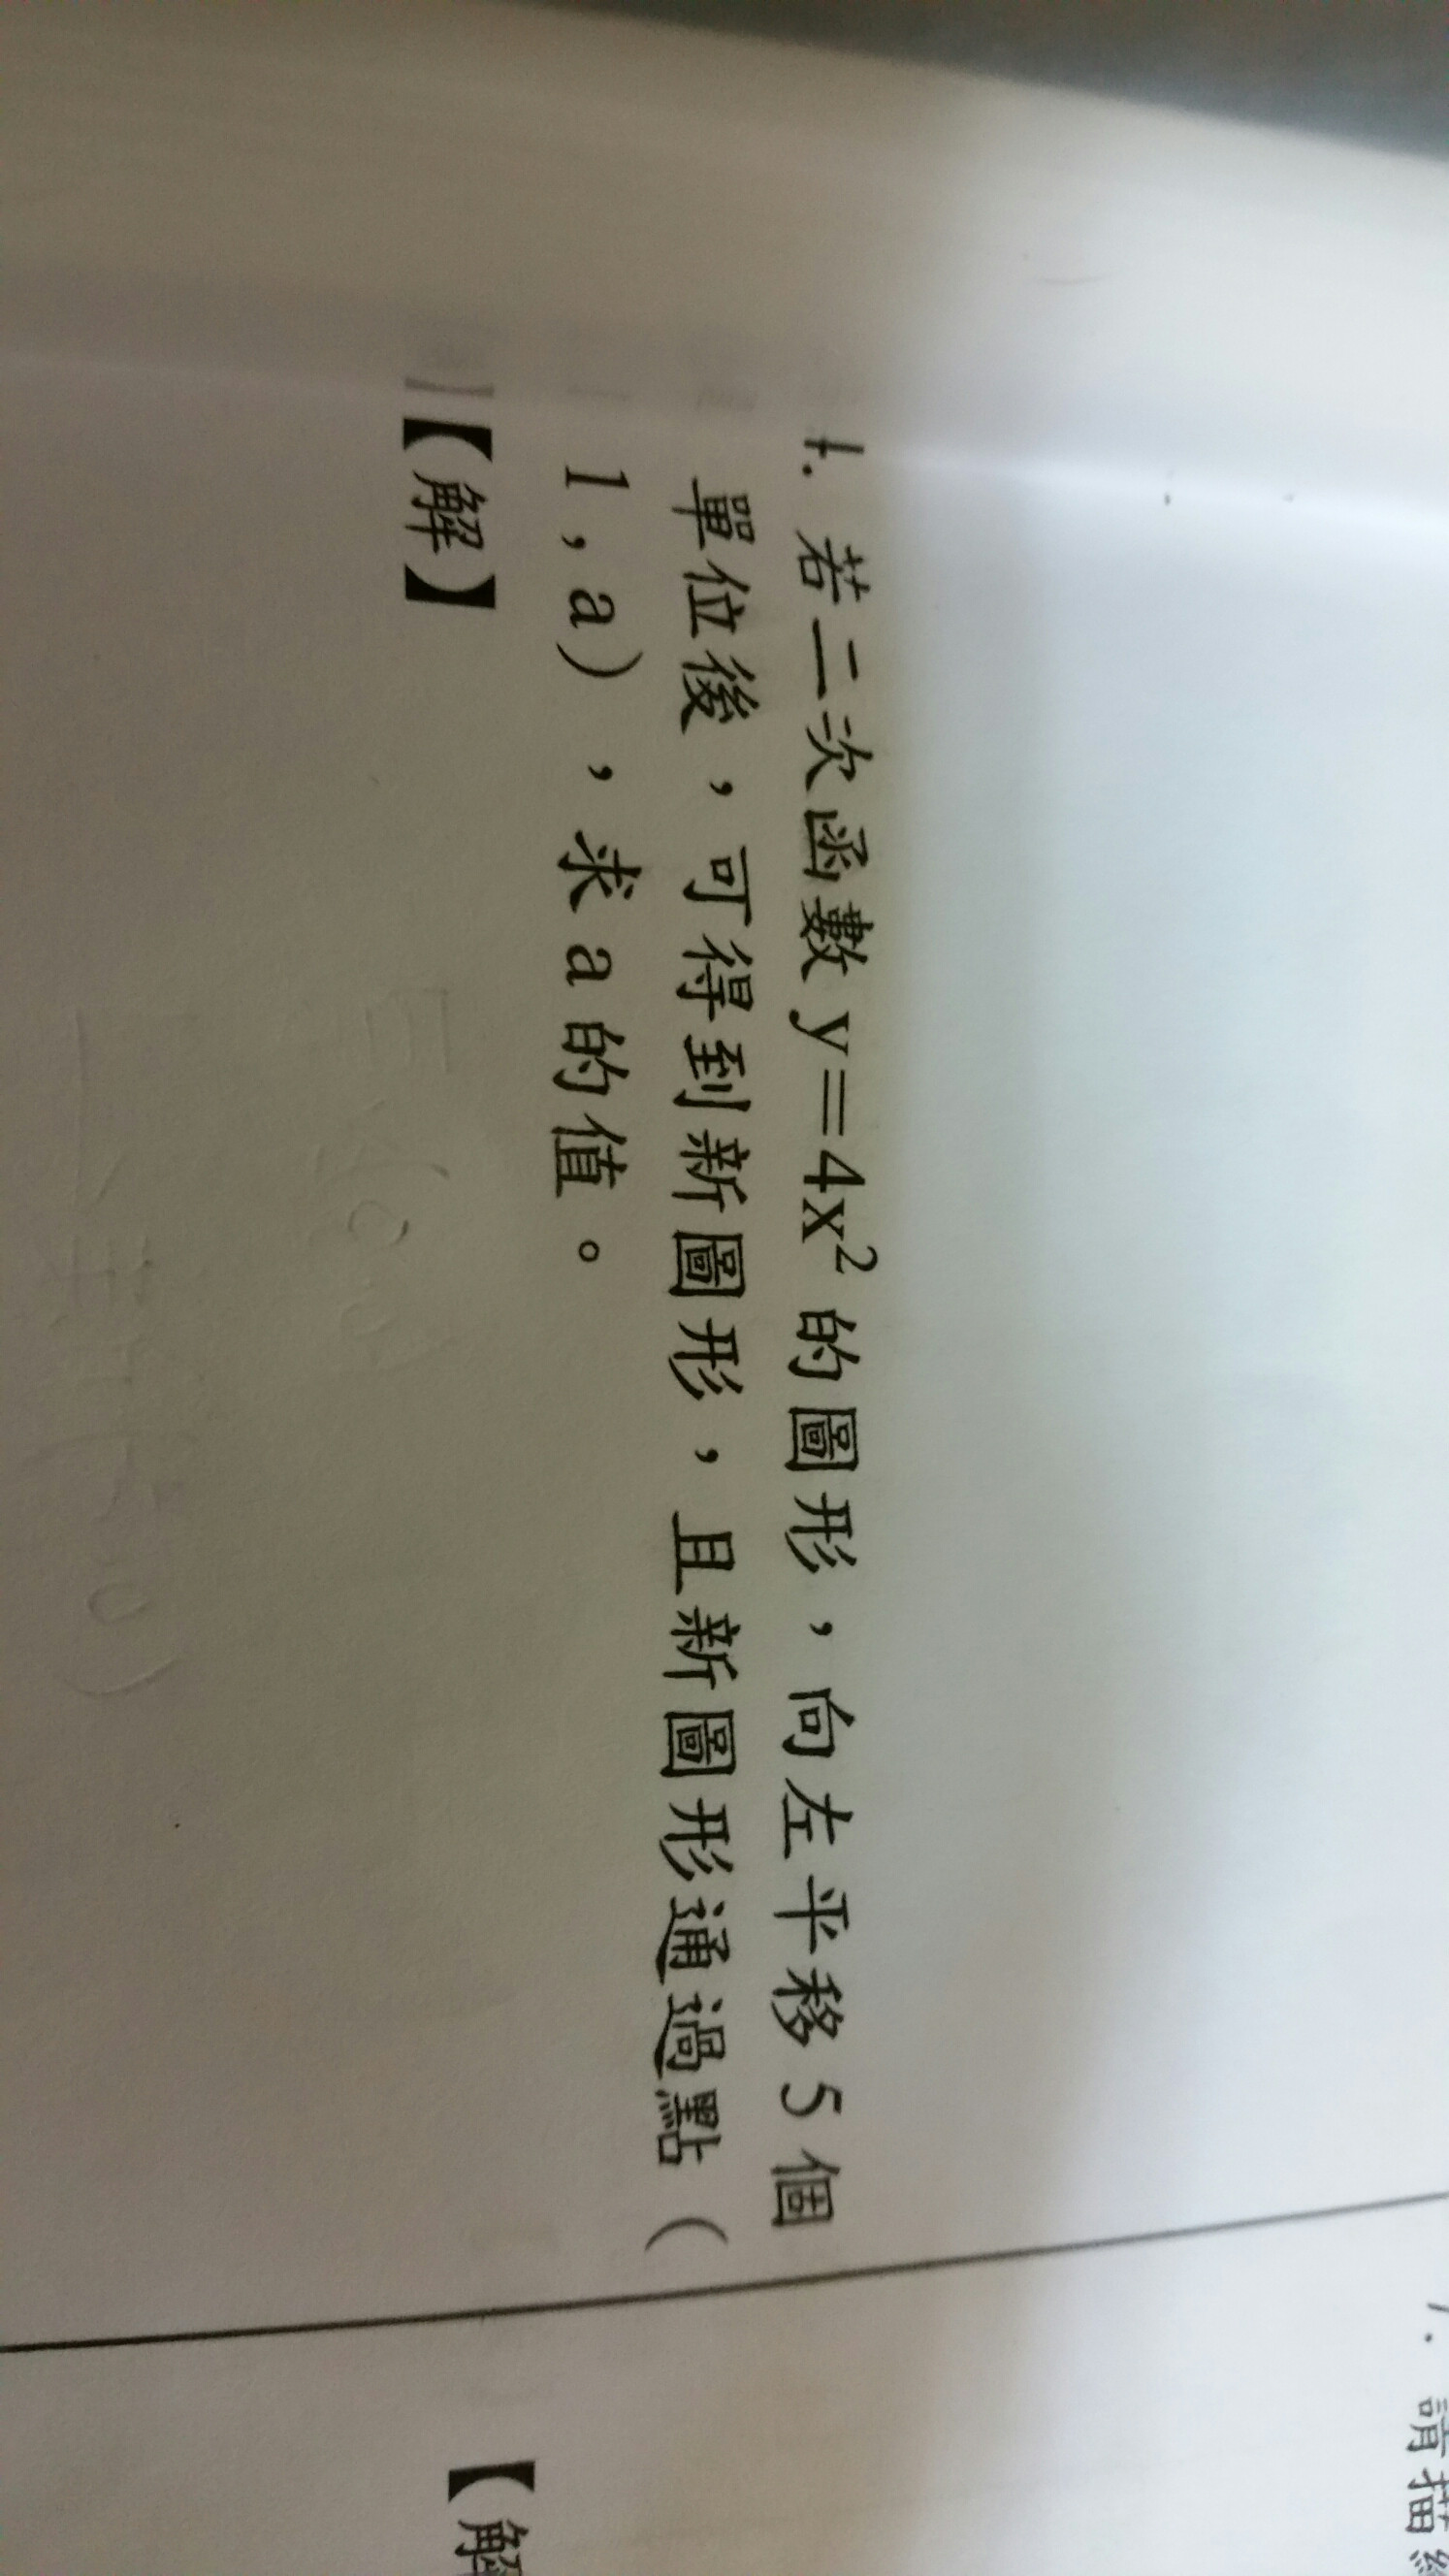 4. 若二次函數 y=4x² 的圖形，向左平移 5 個
單位後，可得到新圖形，且新圖形通過點（
1,a），求 a 的值。
【解】
7. 請描
【解